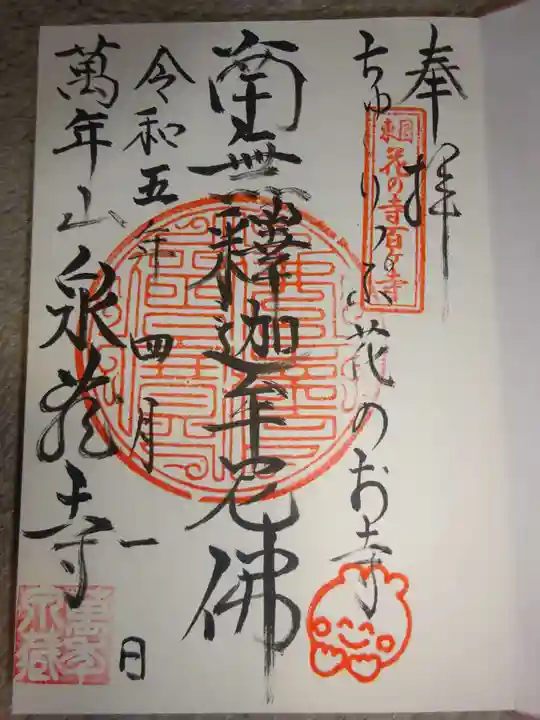 奉拝
ちゅーりっぷ花のお寺
東国花の寺百ヶ寺
南無釋迦牟尼佛
令和五年四月一日
萬年山泉龍寺